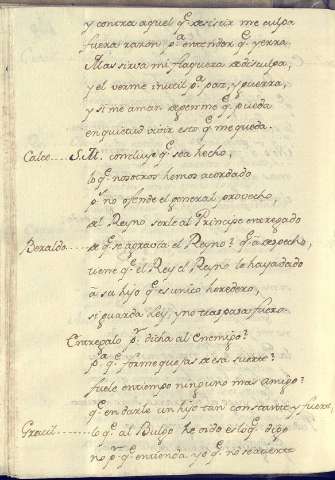 y contra aquel q.e desistir me culpa
fuera razon p.a entender q.e yerra.
Mas sirva mi flaqueza de desculpa,
y el verme inutil p.a paz, y guerra,
y si me aman dexenme q.e pueda
en quietud vivir esto q.e me queda.
Calce.... S.M. concluye q.e sea hecho,
lo q.e nosotros hemos acordado
p.s no ofende el general provecho,
del Reyno serle al Principe entregado
Beraldo.... de q.e se agravia el Reyno? q.e a despecho,
tiene q.e el Rey el Reyno le haya dado
a su hijo q.e es unico heredero,
si guarda ley, y no traspasa fuero.
Entregalo p.r dicha al enemigo?
p.a q.e forme quejas de esa suerte?
fuele en tiempo ninguno mas amigo?
q.e en darle un hijo tan constante y fuerte,
Gracil.... lo q.e al Bulgo he oido es lo q.e digo
no p.r q.e entienda yo q.e no se acierte